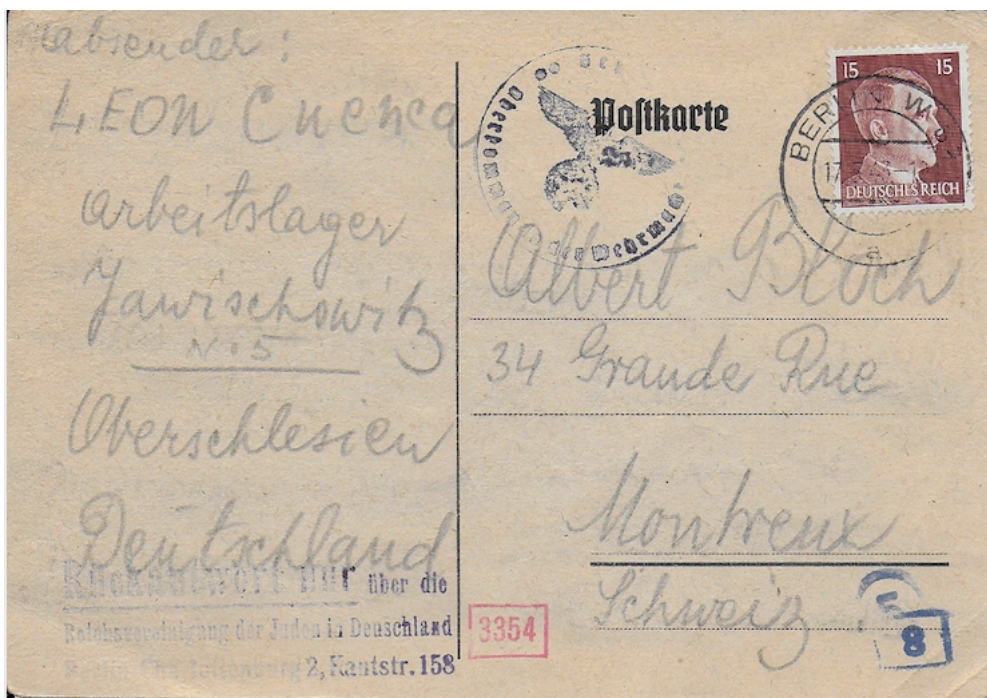 absender :
LEON Cuenca
Arbeitslager
Jawischowitz
N. 5
Oberschlesien
Deutschland
Rückantwort nur über die
Reichsvereinigung der Juden in Deuschland
2, Kantstr. 158
Postkarte
Oberkommando
der Wehrmacht
15 15
DEUTSCHES REICH
BERLIN
17
a
Albert Bloch
34 Grande Rue
Montreux
Schweiz
3354
8